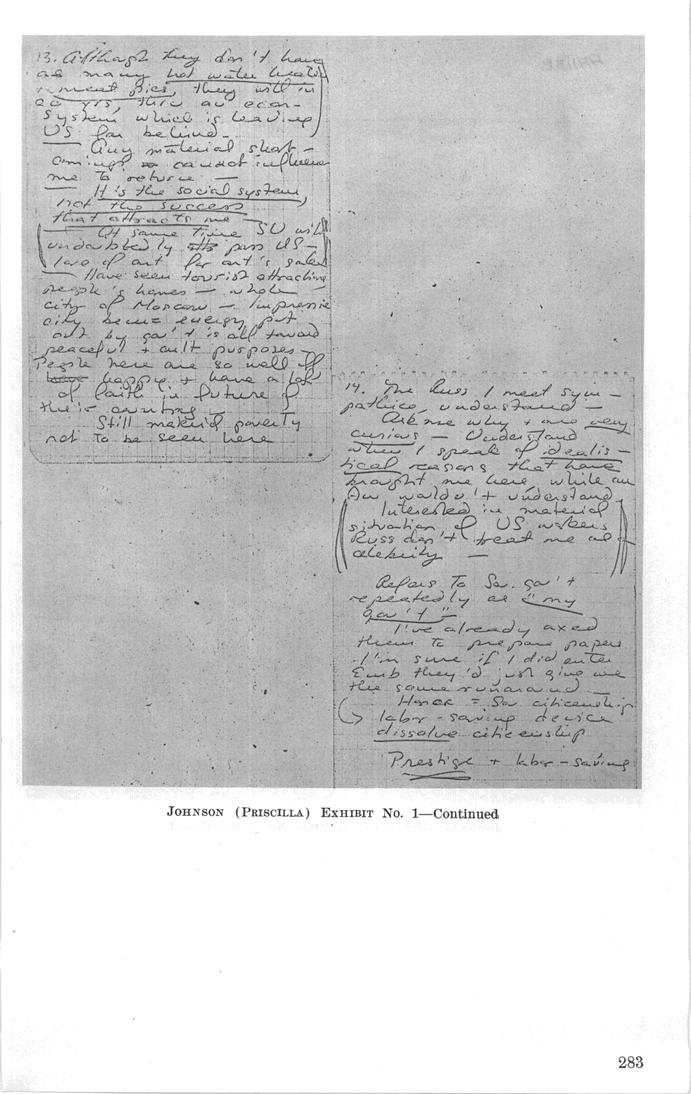 13. Although they don't have
as many hot water heaters
+ meat pies, they will in
20 yrs, thru an econ-
system which is leaving
US far behind –
— Any material short –
comings cannot influence
me to return —
— It is the social system,
not the success
that attracts me —
At same time SU will
undoubtedly pass US –
love of art for art's sake
— Have seen tourist attractions
people's homes — whole
city of Moscow — Impressive
city because energy put
out by gov't is all toward
peaceful + cult purposes –
People here are so well off
happy + have a lot
of faith in future of
their country —
Still material poverty
not to be seen here
14. The Russ I meet sym –
pathize, understand —
Ask me why + are very
curious — Understand
when I speak of idealis –
tical reasons that have
brought me here while an
Am wouldn't understand
Interested in material
situation of US workers
Russ don't treat me as a
celebrity —
Refers to Sov. gov't
repeatedly as "my
gov't"
I've already axed
them to prepare papers
I'm sure if I did enter
Emb they'd just give me
the same runaround —
Honor = Sov citizenship
labor-saving device
dissolve citizenship
Prestige + labor-saving
JOHNSON (PRISCILLA) EXHIBIT NO. 1—Continued
283